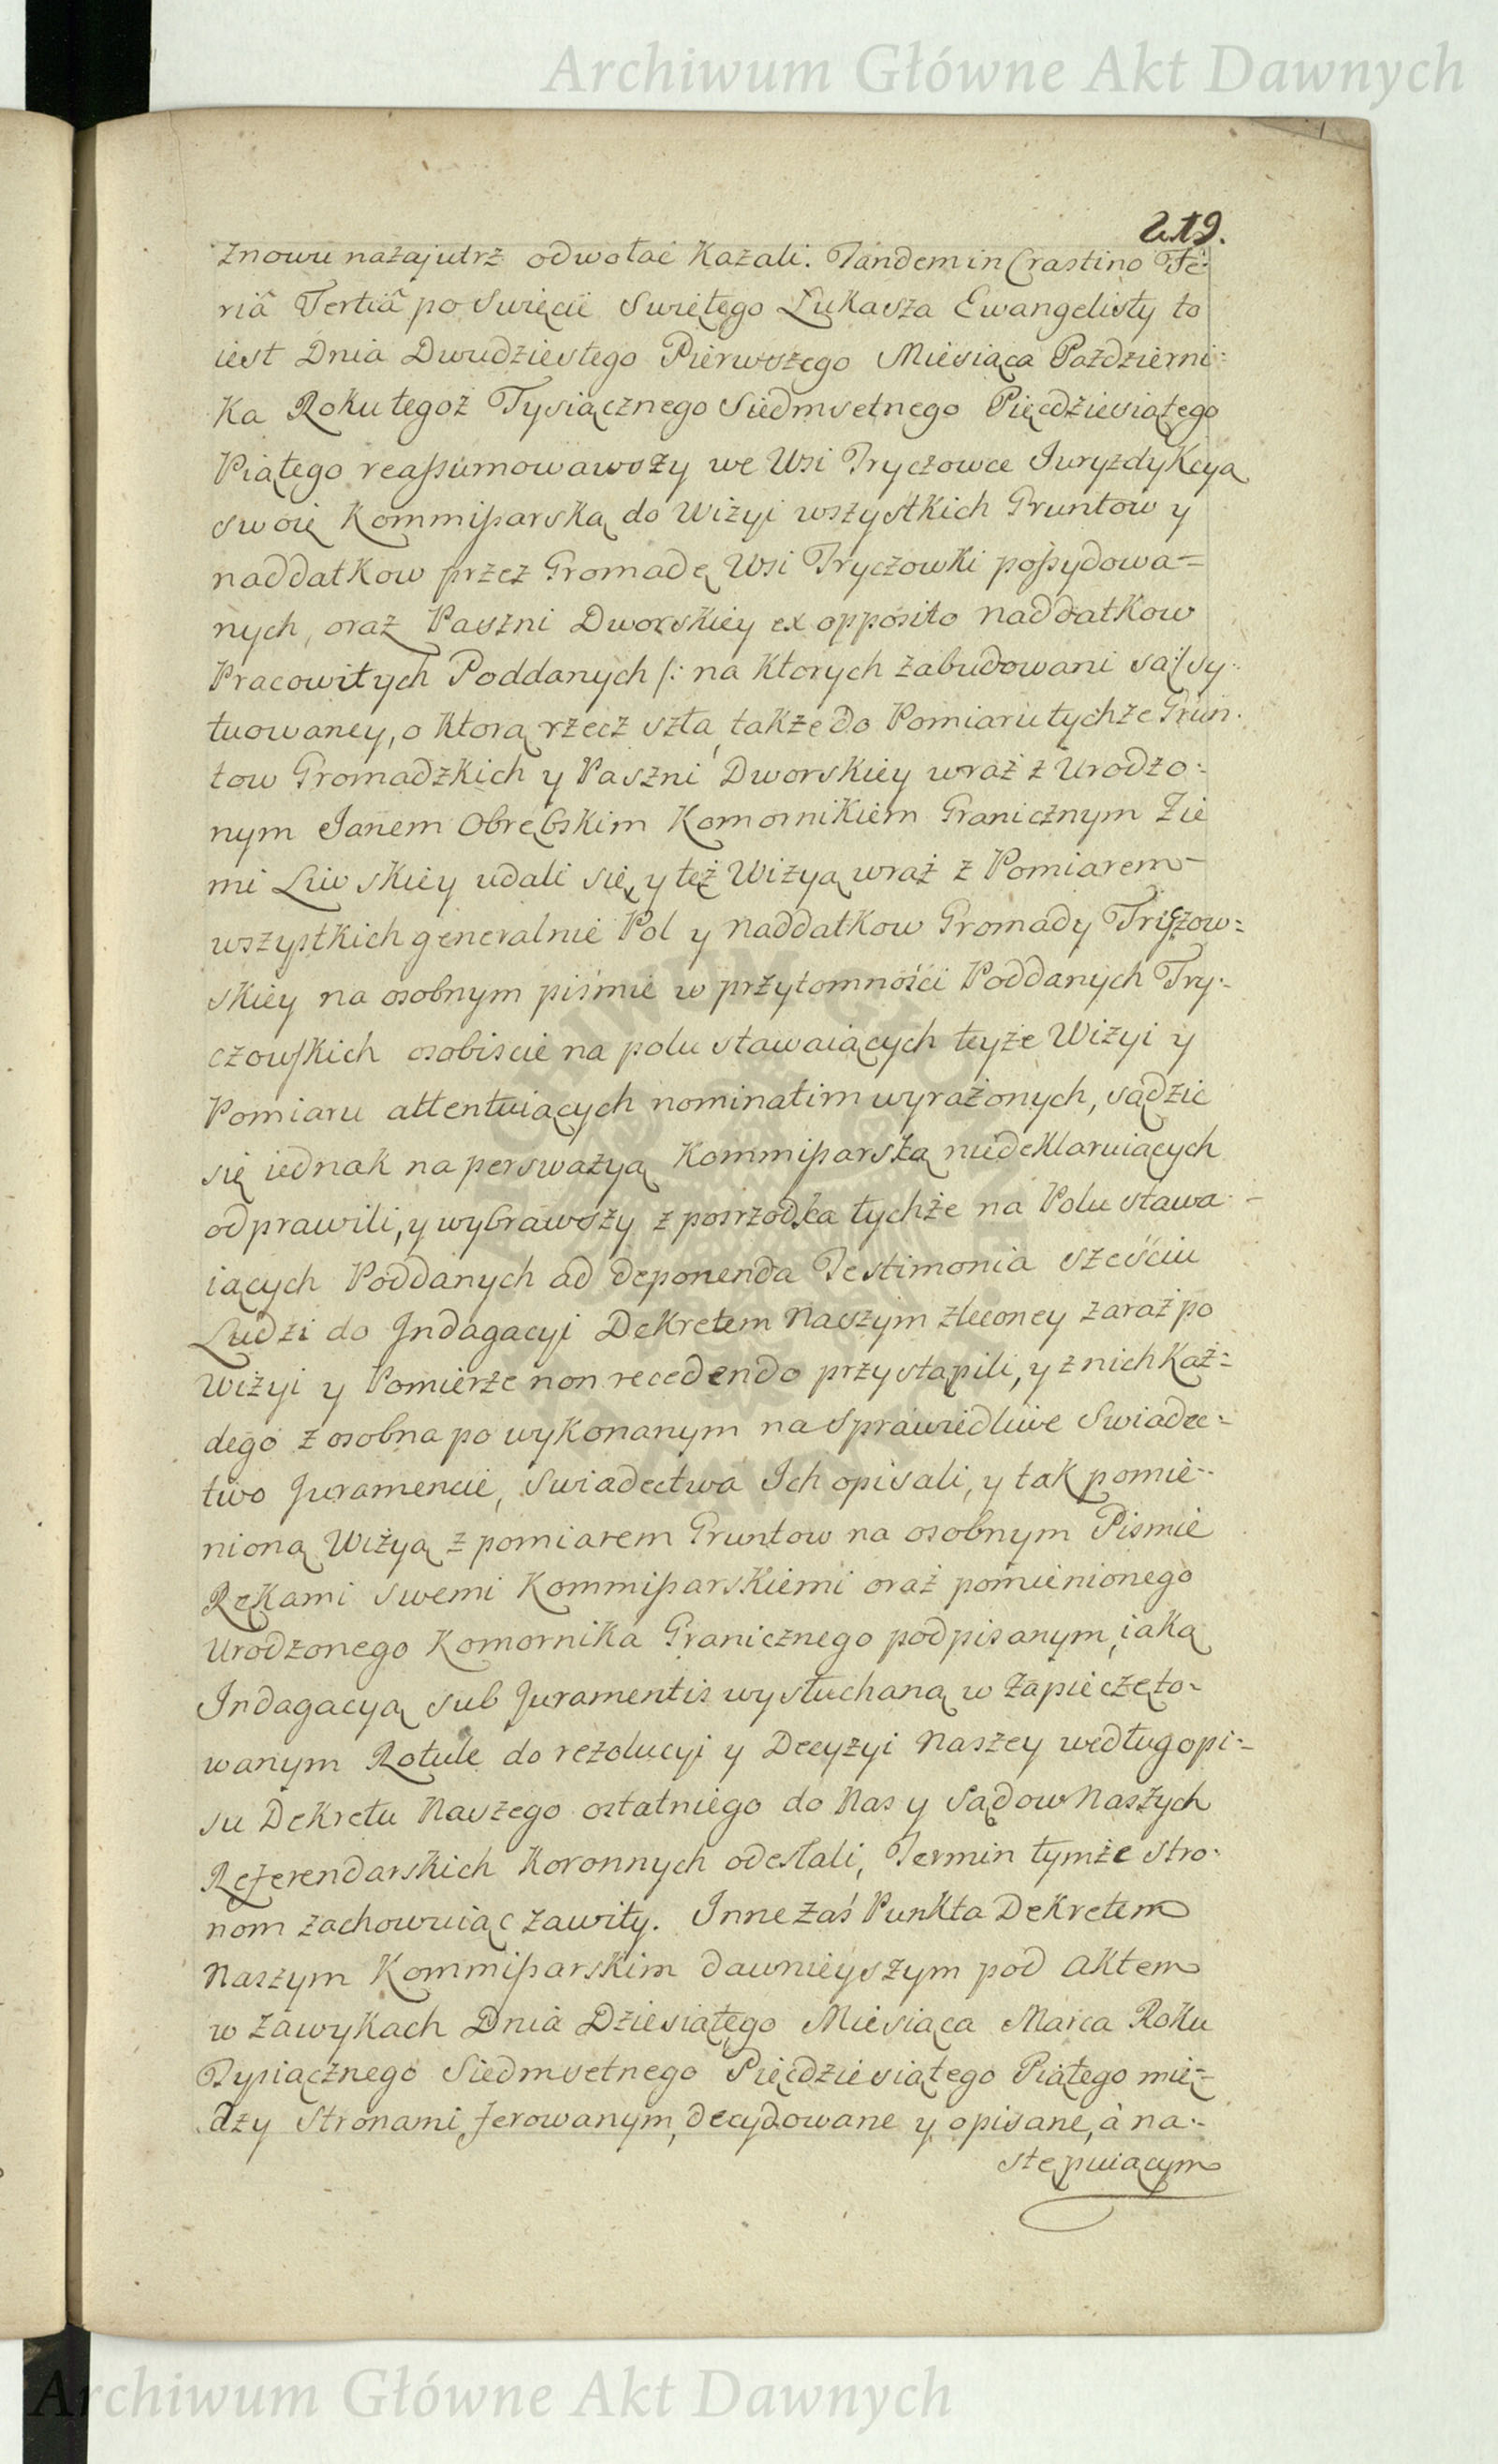 Archiwum Główne Akt Dawnych
219.
znowu nazajutrz odwołać kazali. Tandem in Crastino Fe:
riâ Tertiâ po Swięcie Swiętego Łukasza Ewangelisty to
iest Dnia Dwudziestego Pierwszego Miesiąca Pazdzierni:
ka Roku tegoż Tysiącznego Siedmsetnego Pięcdziesiątego
Piątego reassumowawszy we Wsi Tryczowce Juryzdykcyą
swoię Kommissarską do Wizyi wszystkich Gruntow y
naddatkow przez Gromadę Wsi Tryczowki possydowa=
nych, oraz Paszni Dworskiey ex opposito naddatkow
Pracowitych Poddanych /: na ktorych zabudowani są :/ sy:
tuowaney, o ktorą rzecz szła, także do Pomiaru tychże Grun:
tow Gromadzkich y Paszni Dworskiey wraz z Urodzo:
nym Janem Obrębskim Komornikiem Granicznym Zie
mi Liwskiey udali się, y też Wizyą wraz z Pomiarem
wszystkich generalnie Pol y naddatkow Gromady Tryczow:
skiey na osobnym pismie w przytomności Poddanych Try:
czowskich osobiscie na polu stawaiących teyże Wizyi y
Pomiaru attentuiących nominatim wyrażonych, sądzic
się iednak na perswazyą Kommissarską niedeklaruiących
odprawili, y wybrawszy z posrzodka tychże na Polu stawa:
iących Poddanych ad deponenda Testimonia sześciu
Ludzi do Jndagacyi Dekretem Naszym zleconey zaraz po
Wizyi y Pomierze non recedendo przystąpili, y z nich Każ:
dego z osobna po wykonanym na sprawiedliwe Swiadec:
two Juramencie, swiadectwa Jch opisali, y tak pomie:
nioną Wizyą z pomiarem Gruntow na osobnym Pismie
Rękami swemi Kommissarskiemi oraz pomienionego
Urodzonego Komornika Granicznego podpisanym, iaką
Jndagacyą sub Juramentis wysłuchaną w zapieczęto:
wanym Rotule do rezolucyi y Decyzyi Naszey według opi:
su Dekretu Naszego ostatniego do Nas y Sądow Naszych
Referendarskich Koronnych odesłali, Termin tymże stro:
nom zachowuiąc zawity. Inne zaś Punkta Dekretem
Naszym Kommissarskim dawnieyszym pod Aktem
w Zawykach Dnia Dziesiątego Miesiąca Marca Roku
Tysiącznego Siedmsetnego Pięcdziesiątego Piątego mię:
dzy Stronami ferowanym, decydowane y opisane, à na:
stępuiącym
Archiwum Główne Akt Dawnych